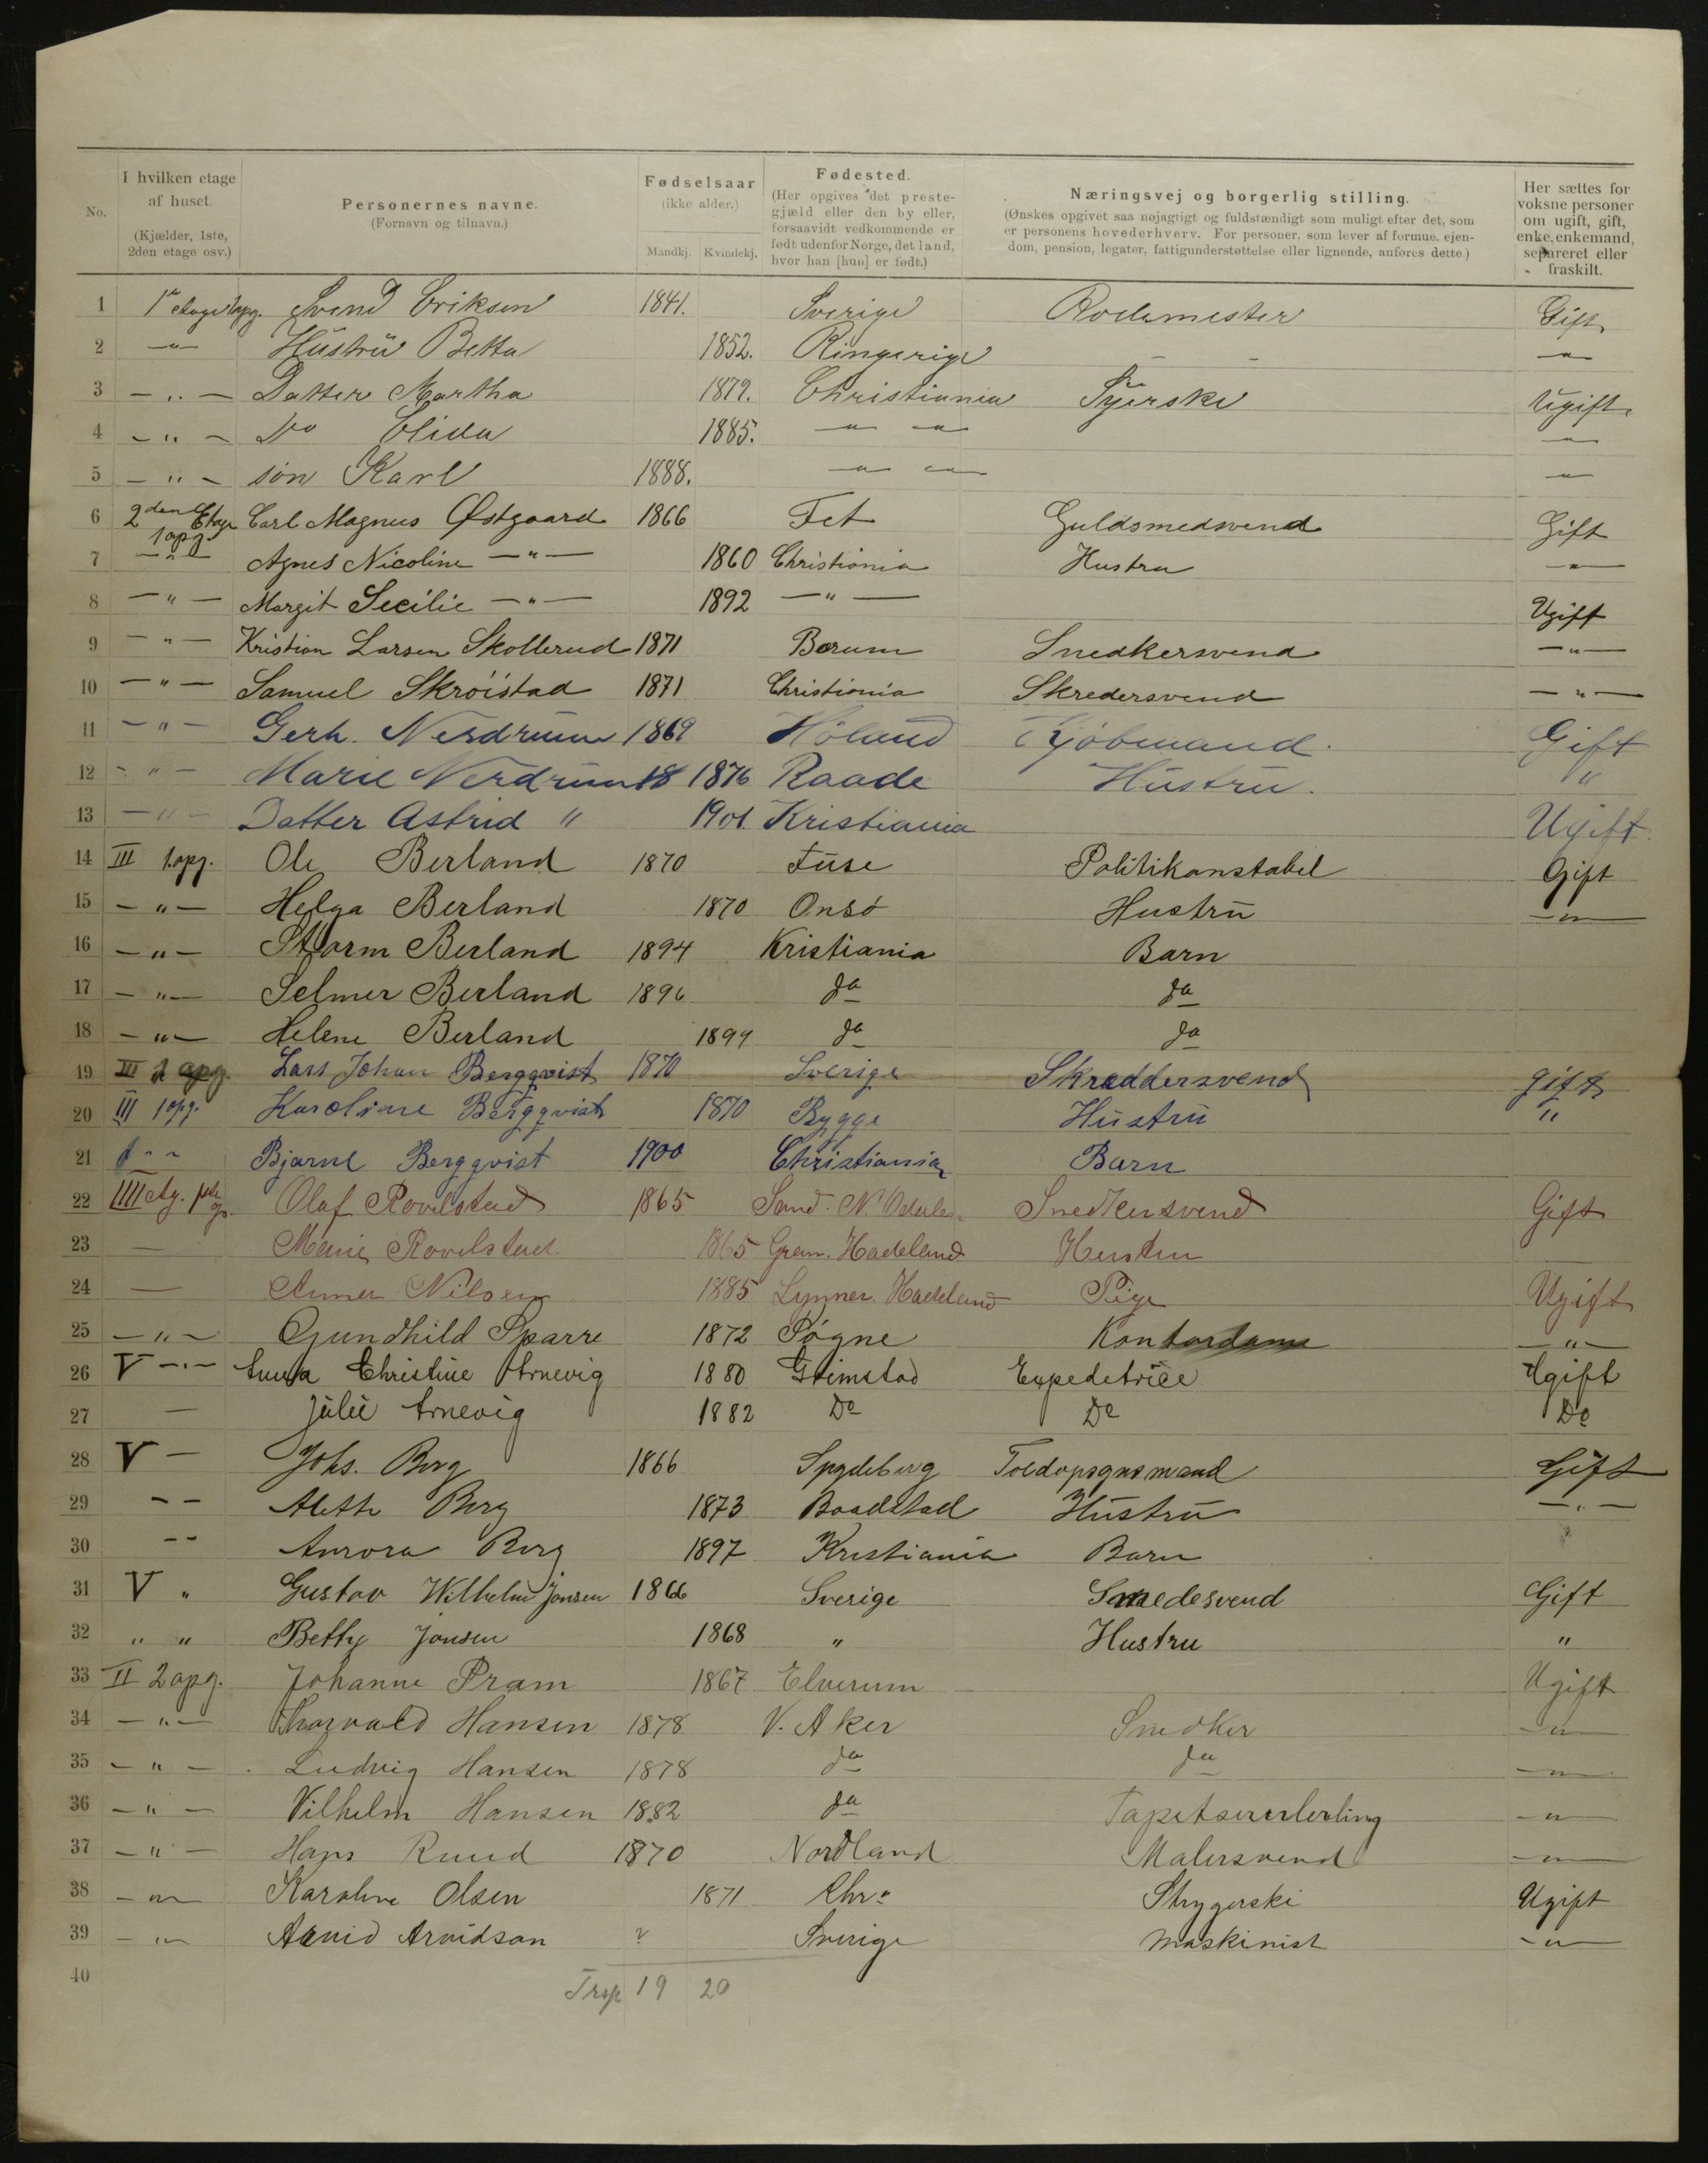 I hvilken etage af huset. (Kjælder, 1ste, 2den etage osv.)
No.
Personernes navne. (Fornavn og tilnavn.)
Fødselsaar (ikke alder.) Mandkj. Kvindekj.
Fødested. (Her opgives det prestegjæld eller den by eller, forsaavidt vedkommende er født udenfor Norge, det land, hvor han [hun] er født.)
Næringsvej og borgerlig stilling. (Ønskes opgivet saa nøjagtigt og fuldstændigt som muligt efter det, som er personens hovederhverv. For personer, som lever af formue, ejendom, pension, legater, fattigunderstøttelse eller lignende, anføres dette.)
Her sættes for voksne personer om ugift, gift, enke, enkemand, separeret eller fraskilt.
1 1ste etage 1 opg. Svend Eriksen 1841. Sverige Rodemester Gift
2 — " — Hustru Betta 1852. Ringerige — — — " —
3 — " — Datter Martha 1879. Christiania Syerske Ugift
4 — " — Do Elida 1885. — " — " — — " —
5 — " — søn Karl 1888. — " — " — — " —
6 2den Etage 1 opg. Carl Magnus Østgaard 1866 Fet Guldsmedsvend Gift
7 — " — Agnes Nicoline — " — 1860 Christiania Hustru — " —
8 — " — Margit Secilie — " — 1892 — " — Ugift
9 — " — Kristian Larsen Skollerud 1871 Bærum Snedkersvend — " —
10 — " — Samuel Skrøistad 1871 Christiania Skredersvend — " —
11 — " — Gerh. Nerdrum 1869 Høland Kjøbmand. Gift
12 — " — Marie Nerdrum 18 1876 Raade Hustru. "
13 — " — Datter Astrid " 1901. Kristiania Ugift.
14 III 1. opg. Ole Berland 1870 Fuse Politikonstabel Gift
15 — " — Helga Berland 1870 Onsø Hustru — " —
16 — " — Storm Berland 1894 Kristiania Barn
17 — " — Selmer Berland 1896 do do
18 — " — Helene Berland 1899 do do
19 III 1 opg. Lars Johan Bergqvist 1870 Sverige Skraddersvend gift
20 III 1 opg. Karoline Bergqvist 1870 Rygge Hustru "
21 " " Bjarne Bergqvist 1900 Christiania Barn
22 IIII etg. Olaf Rovelstad 1865 Sand. N. Odalen Snedkersvend Gift
23 — Marie Rovelstad 1865 Gran. Hadeland Hustru
24 — Anna Nilsen 1885 Lynner. Hadeland Pige Ugift
25 — " — Gundhild Sparre 1872 Søgne Kontordame — " —
26 V — " — Anna Christine Arnevig 1880 Grimstad Expeditrice Ugift
27 — Julie Arnevig 1882 Do Do Do
28 V — Johs. Berg 1866 Spydeberg Toldopsynsmand Gift
29 — — Aleth Berg 1873 Baadstad Hustru — " —
30 — — Aurora Berg 1897 Kristiania Barn
31 V " Gustav Wilhelm Jonsen 1866 Sverige Smedesvend Gift
32 " " Betty Jonsen 1868 " Hustru "
33 II 2 opg. Johanne Pram 1867 Elverum Ugift
34 — " — Thorvald Hansen 1878 V. Aker Snedker — " —
35 — " — Ludvig Hansen 1878 do do — " —
36 — " — Vilhelm Hansen 1882 do Tapetsererlerling — " —
37 — " — Hans Ruud 1870 Nordland Malersvend — " —
38 — " — Karoline Olsen 1871 Chr.a Strygerske Ugift
39 — " — Arvid Arvidson ? Sverige Maskinist — " —
40
Trsp 19 20